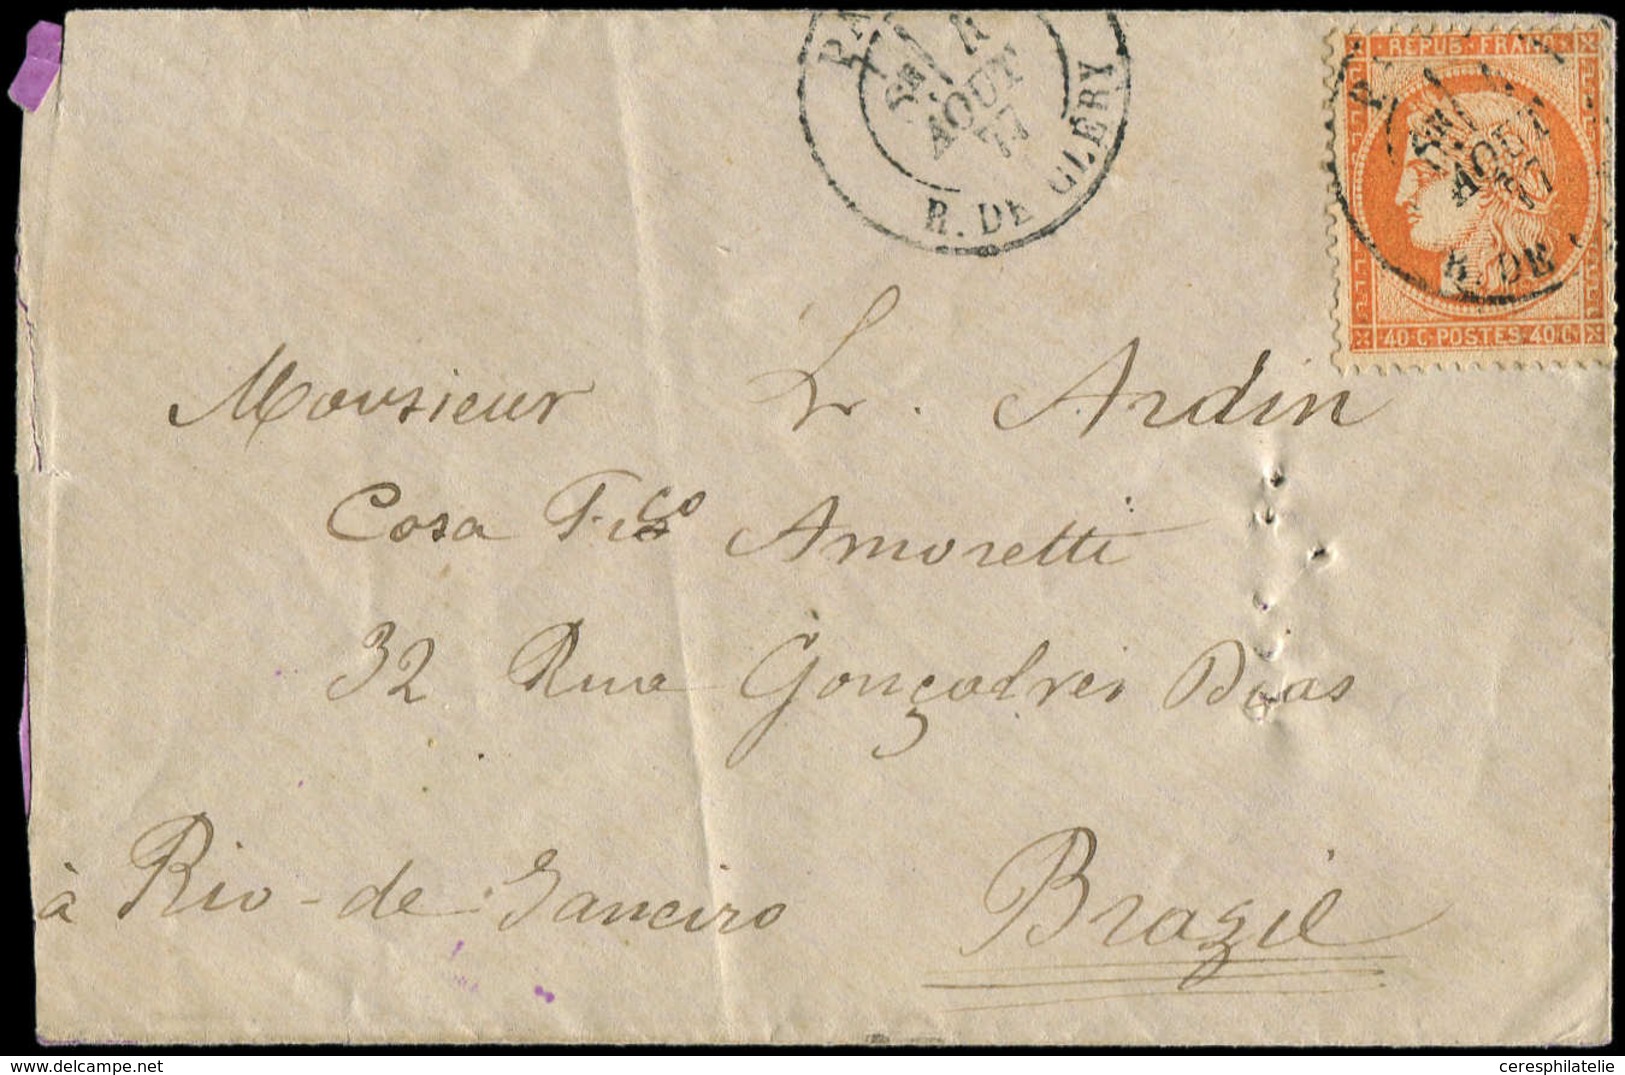 PA
5E 4
AOUT
77
R. DE CLERY
REPUB. FRANC.
AOUT
R. DE
40·C·POSTES·40·C·
Monsieur L. Ardin
Cosa Fisco Amoretti
32 Rua Gonçalvez Dias
à Rio-de-Janeiro Brazil
www.delcampe.net
ceresphilatelie